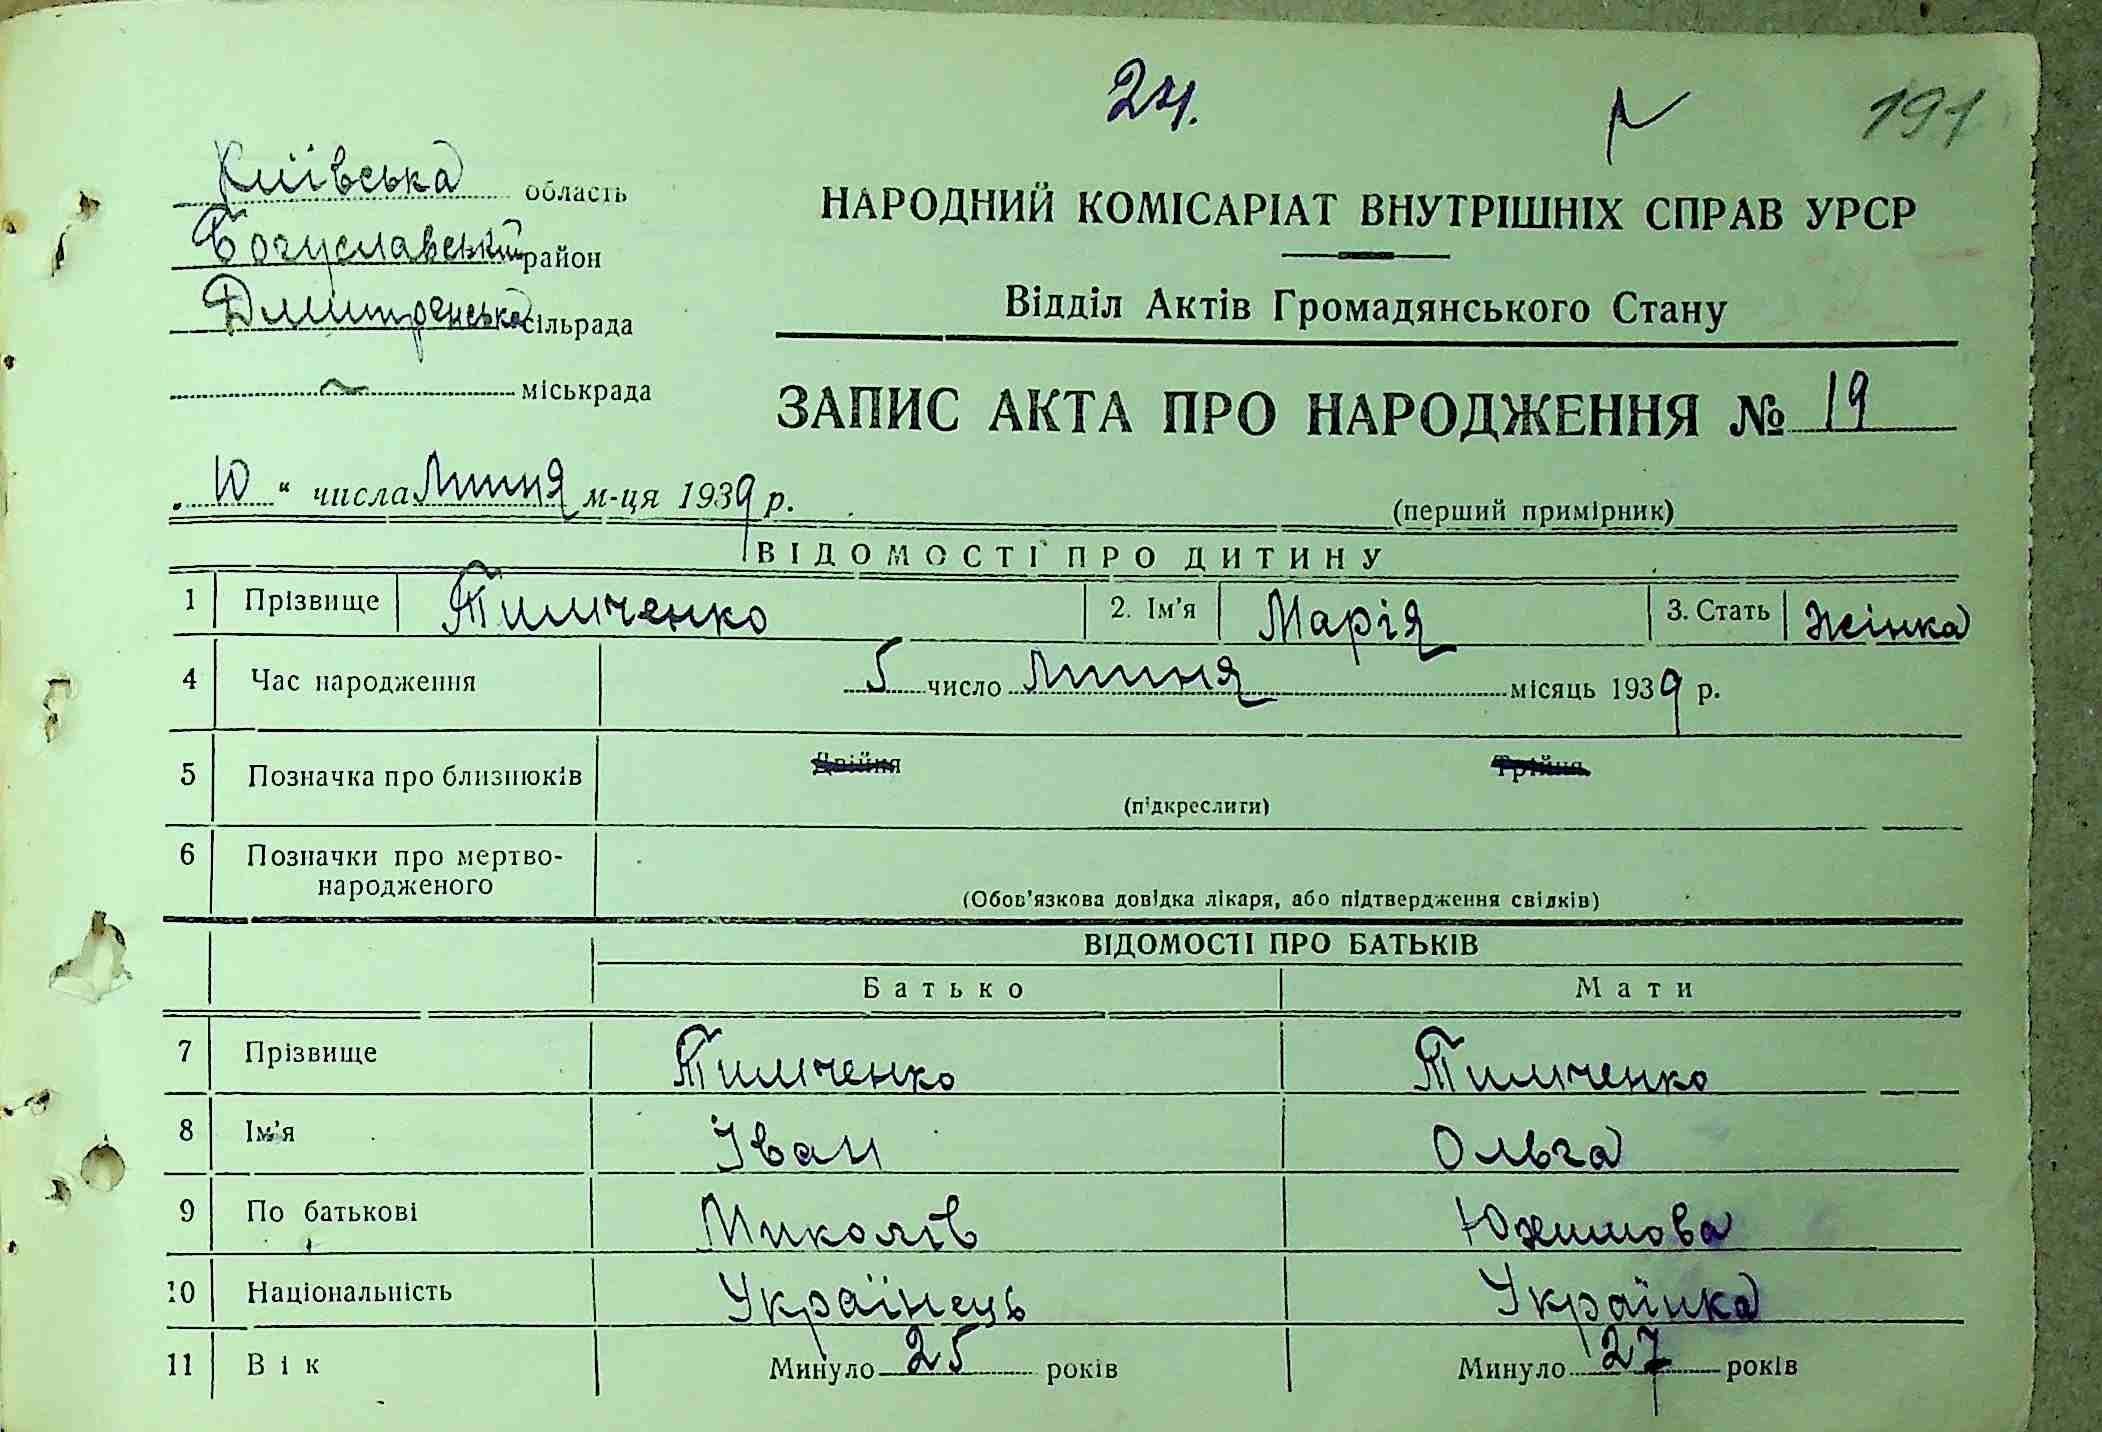 24.
191
Київська область
Богуславський район
Дмитренська сільрада
міськрада
НАРОДНИЙ КОМІСАРІАТ ВНУТРІШНІХ СПРАВ УРСР
Відділ Актів Громадянського Стану
ЗАПИС АКТА ПРО НАРОДЖЕННЯ № 19
„10“ числа Липня м-ця 1939 р.
(перший примірник)
ВІДОМОСТІ ПРО ДИТИНУ
1 Прізвище Тимченко 2. Ім'я Марія 3. Стать Жінка
4 Час народження 5 число Липня місяць 1939 р.
5 Позначка про близнюків Двійня Трійня
(підкреслити)
6 Позначки про мертво-
народженого
(Обов'язкова довідка лікаря, або підтвердження свідків)
ВІДОМОСТІ ПРО БАТЬКІВ
Батько Мати
7 Прізвище Тимченко Тимченко
8 Ім'я Іван Ольга
9 По батькові Миколів Юхимова
10 Національність Українець Українка
11 Вік Минуло 25 років Минуло 27 років